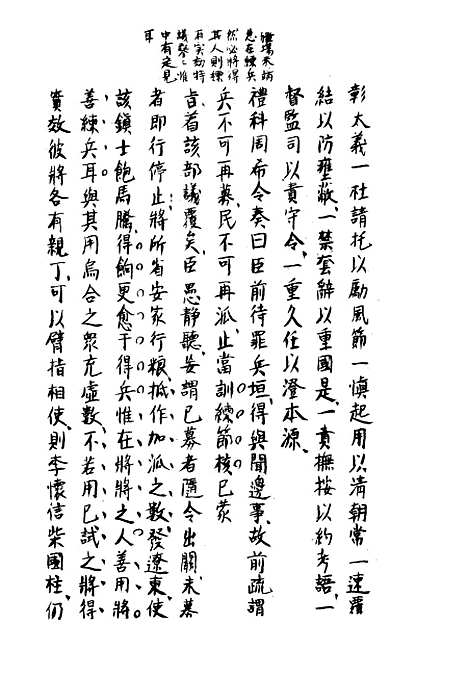 疆場未靖
急在練兵
然必將得
其人則標
兵实劾特
議發之惟
中有定見
耳
彰大義一杜請托以勵風節一慎起用以清朝常一速覆
結以防壅蔽一禁套辭以重國是一責撫按以約考語一
督監司以責守令一重久任以澄本源
禮科周希令奏曰臣前待罪兵垣得與聞邊事故前疏謂
兵不可再募民不可再派止當訓練節核已蒙
旨着該部議覆矣臣愚靜聽妄謂已募者隨令出關未募
者即行停止將所省安家行糧抵作加派之數發遼東使
該鎮士飽馬騰得餉更愈于得兵惟在將將之人善用將
善練兵耳與其用烏合之眾充虛數不若用已試之將得
實效彼將各有親丁可以臂指相使則李懷信柴國柱仍